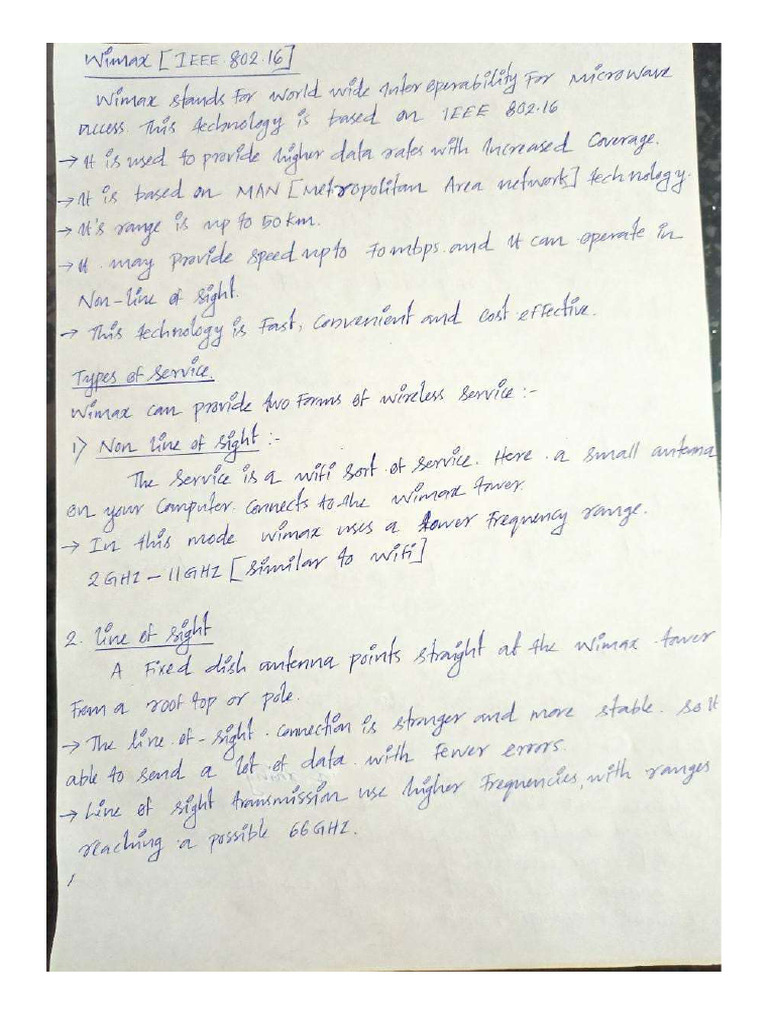 Wimax [IEEE 802.16]
Wimax stands For World wide Inter operability For Microwave
Access. This technology is based on IEEE 802.16
→ It is used to provide higher data rates with Increased Coverage.
→ It is based on MAN [Metropolitan Area network] technology.
→ It's range is up to 50 km.
→ It may provide speed up to 70 mbps. and it can operate in
Non-line of sight.
→ This technology is Fast, Convenient and Cost effective.
Types of Service.
Wimax can provide two Forms of wireless service :-
1) Non line of sight :-
The Service is a wifi sort of service. Here a small antenna
on your Computer. Connects to the Wimax tower.
→ In this mode wimax uses a lower Frequency range.
2 GHz – 11 GHz [similar to wifi]
2. line of sight
A Fixed dish antenna points straight at the Wimax tower
From a roof top or pole.
→ The line of - sight connection is stronger and more stable. So it
able to send a lot of data with Fewer errors.
→ Line of sight transmission use higher Frequencies, with ranges
reaching a possible 66 GHz.